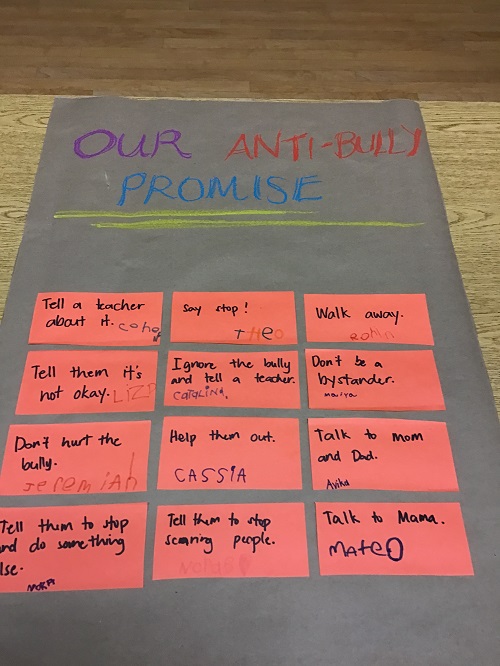 OUR ANTI-BULLY
PROMISE
Tell a teacher
about it.
Say stop!
THEO
Walk away.
Tell them it's
not okay.
Ignore the bully
and tell a teacher.
CATALINA
Don't be a
bystander.
Don't hurt the
bully.
Jeremiah
Help them out.
CASSIA
Talk to mom
and Dad.
Tell them to stop
nd do something
lse.
Tell them to stop
scaring people.
Talk to Mama.
Mateo